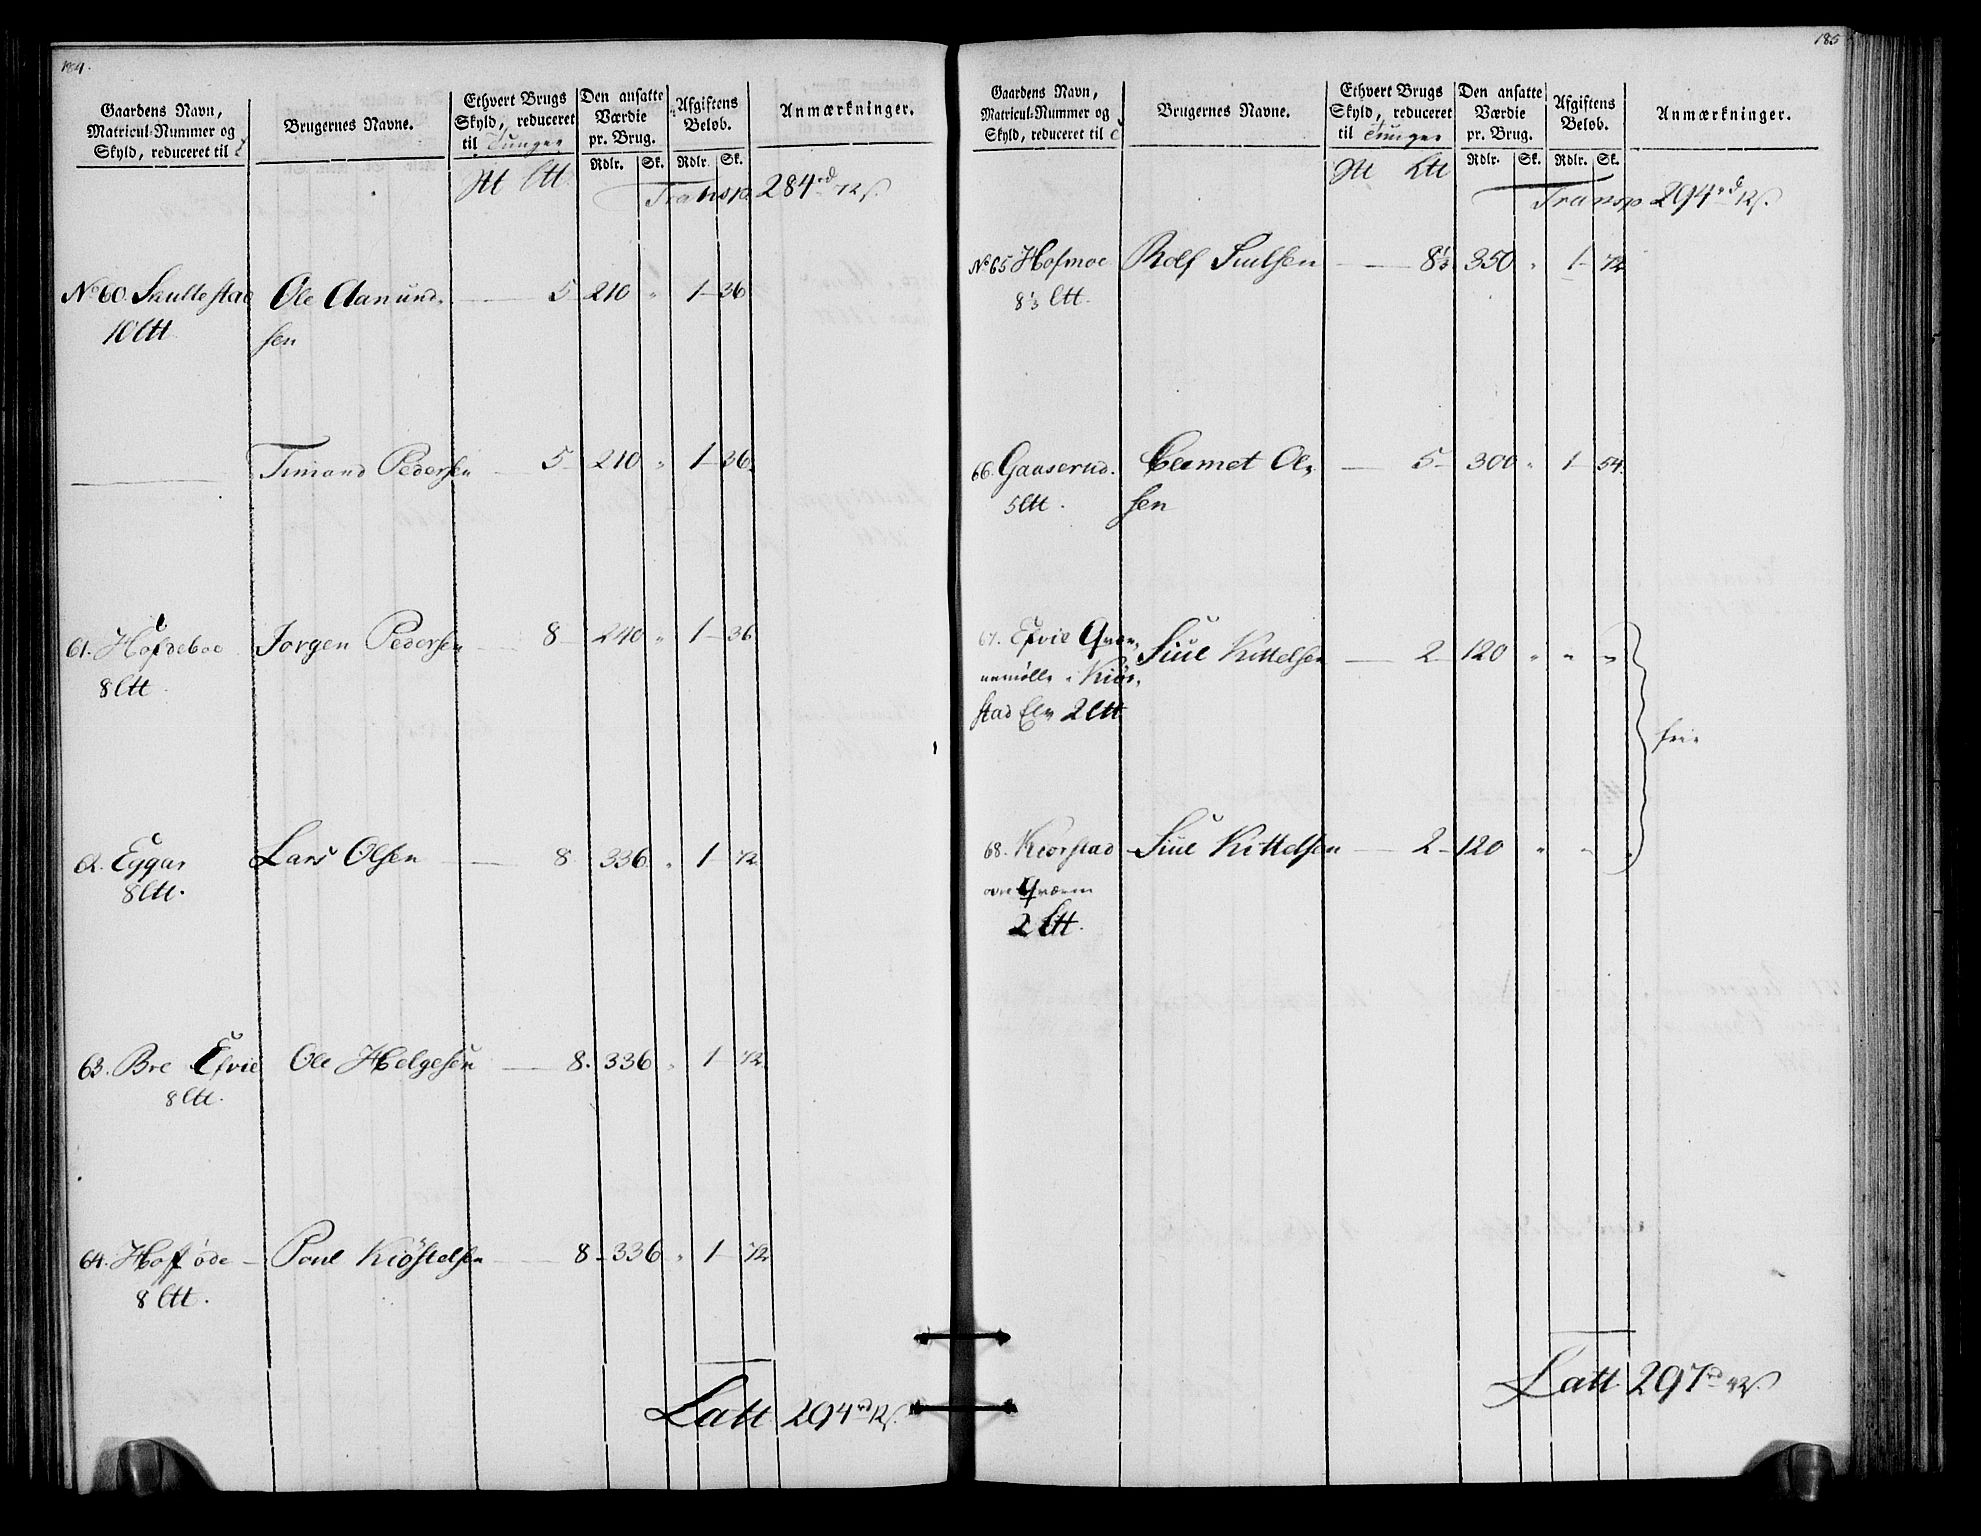 184.
Gaardens Navn, Matricul-Nummer og Skyld, reduceret til
Brugernes Navne.
Ethvert Brugs Skyld, reduceret til Tunger
Den ansatte Værdie pr. Brug.
Afgiftens Beløb.
Anmærkninger.
Rdlr. Sk. Rdlr. Sk.
Transp 284 rd 12 s.
No 60. Skultestad Ole Aamund- 5 210 " 1 - 36
10 Ltt sen
Timand Pedersen 5 - 210 " 1 - 36
61. Hofdeboe Jorgen Pedersen 8 - 240 " 1 - 36
8 Ltt
62. Eggar Lars Olsen 8 336 " 1 - 72
8 Ltt.
63. Bre Efvie Ole Helgesen 8. 336 " 1 - 72
8 Ltt.
64. Hoff øde - Poul Kiøstelsen 8 - 336 " 1 - 72
8 Ltt.
Latt 294 rd 12 s.
185
Gaardens Navn, Matricul-Nummer og Skyld, reduceret til
Brugernes Navne.
Ethvert Brugs Skyld, reduceret til Tunger
Den ansatte Værdie pr. Brug.
Afgiftens Beløb.
Anmærkninger.
Rdlr. Sk. Rdlr. Sk.
Transp 294 rd 12 s.
No 65 Hofmoe Rolf Siulsen 8⅓ 350 " 1 - 72
8⅓ Ltt.
66. Gaaserud. Ole- 5 - 300 " 1 - 54.
5 Ltt. sen
67. Efvie Qvær- Siul Kittelsen 2 - 120 " " "
nemølle i Kiør-
stad Elv 2 Ltt
frie
68. Kiorstad Siul Kittelsen 2 - 120 " " "
Qværn
2 Ltt.
Latt 297 rd 42 s.